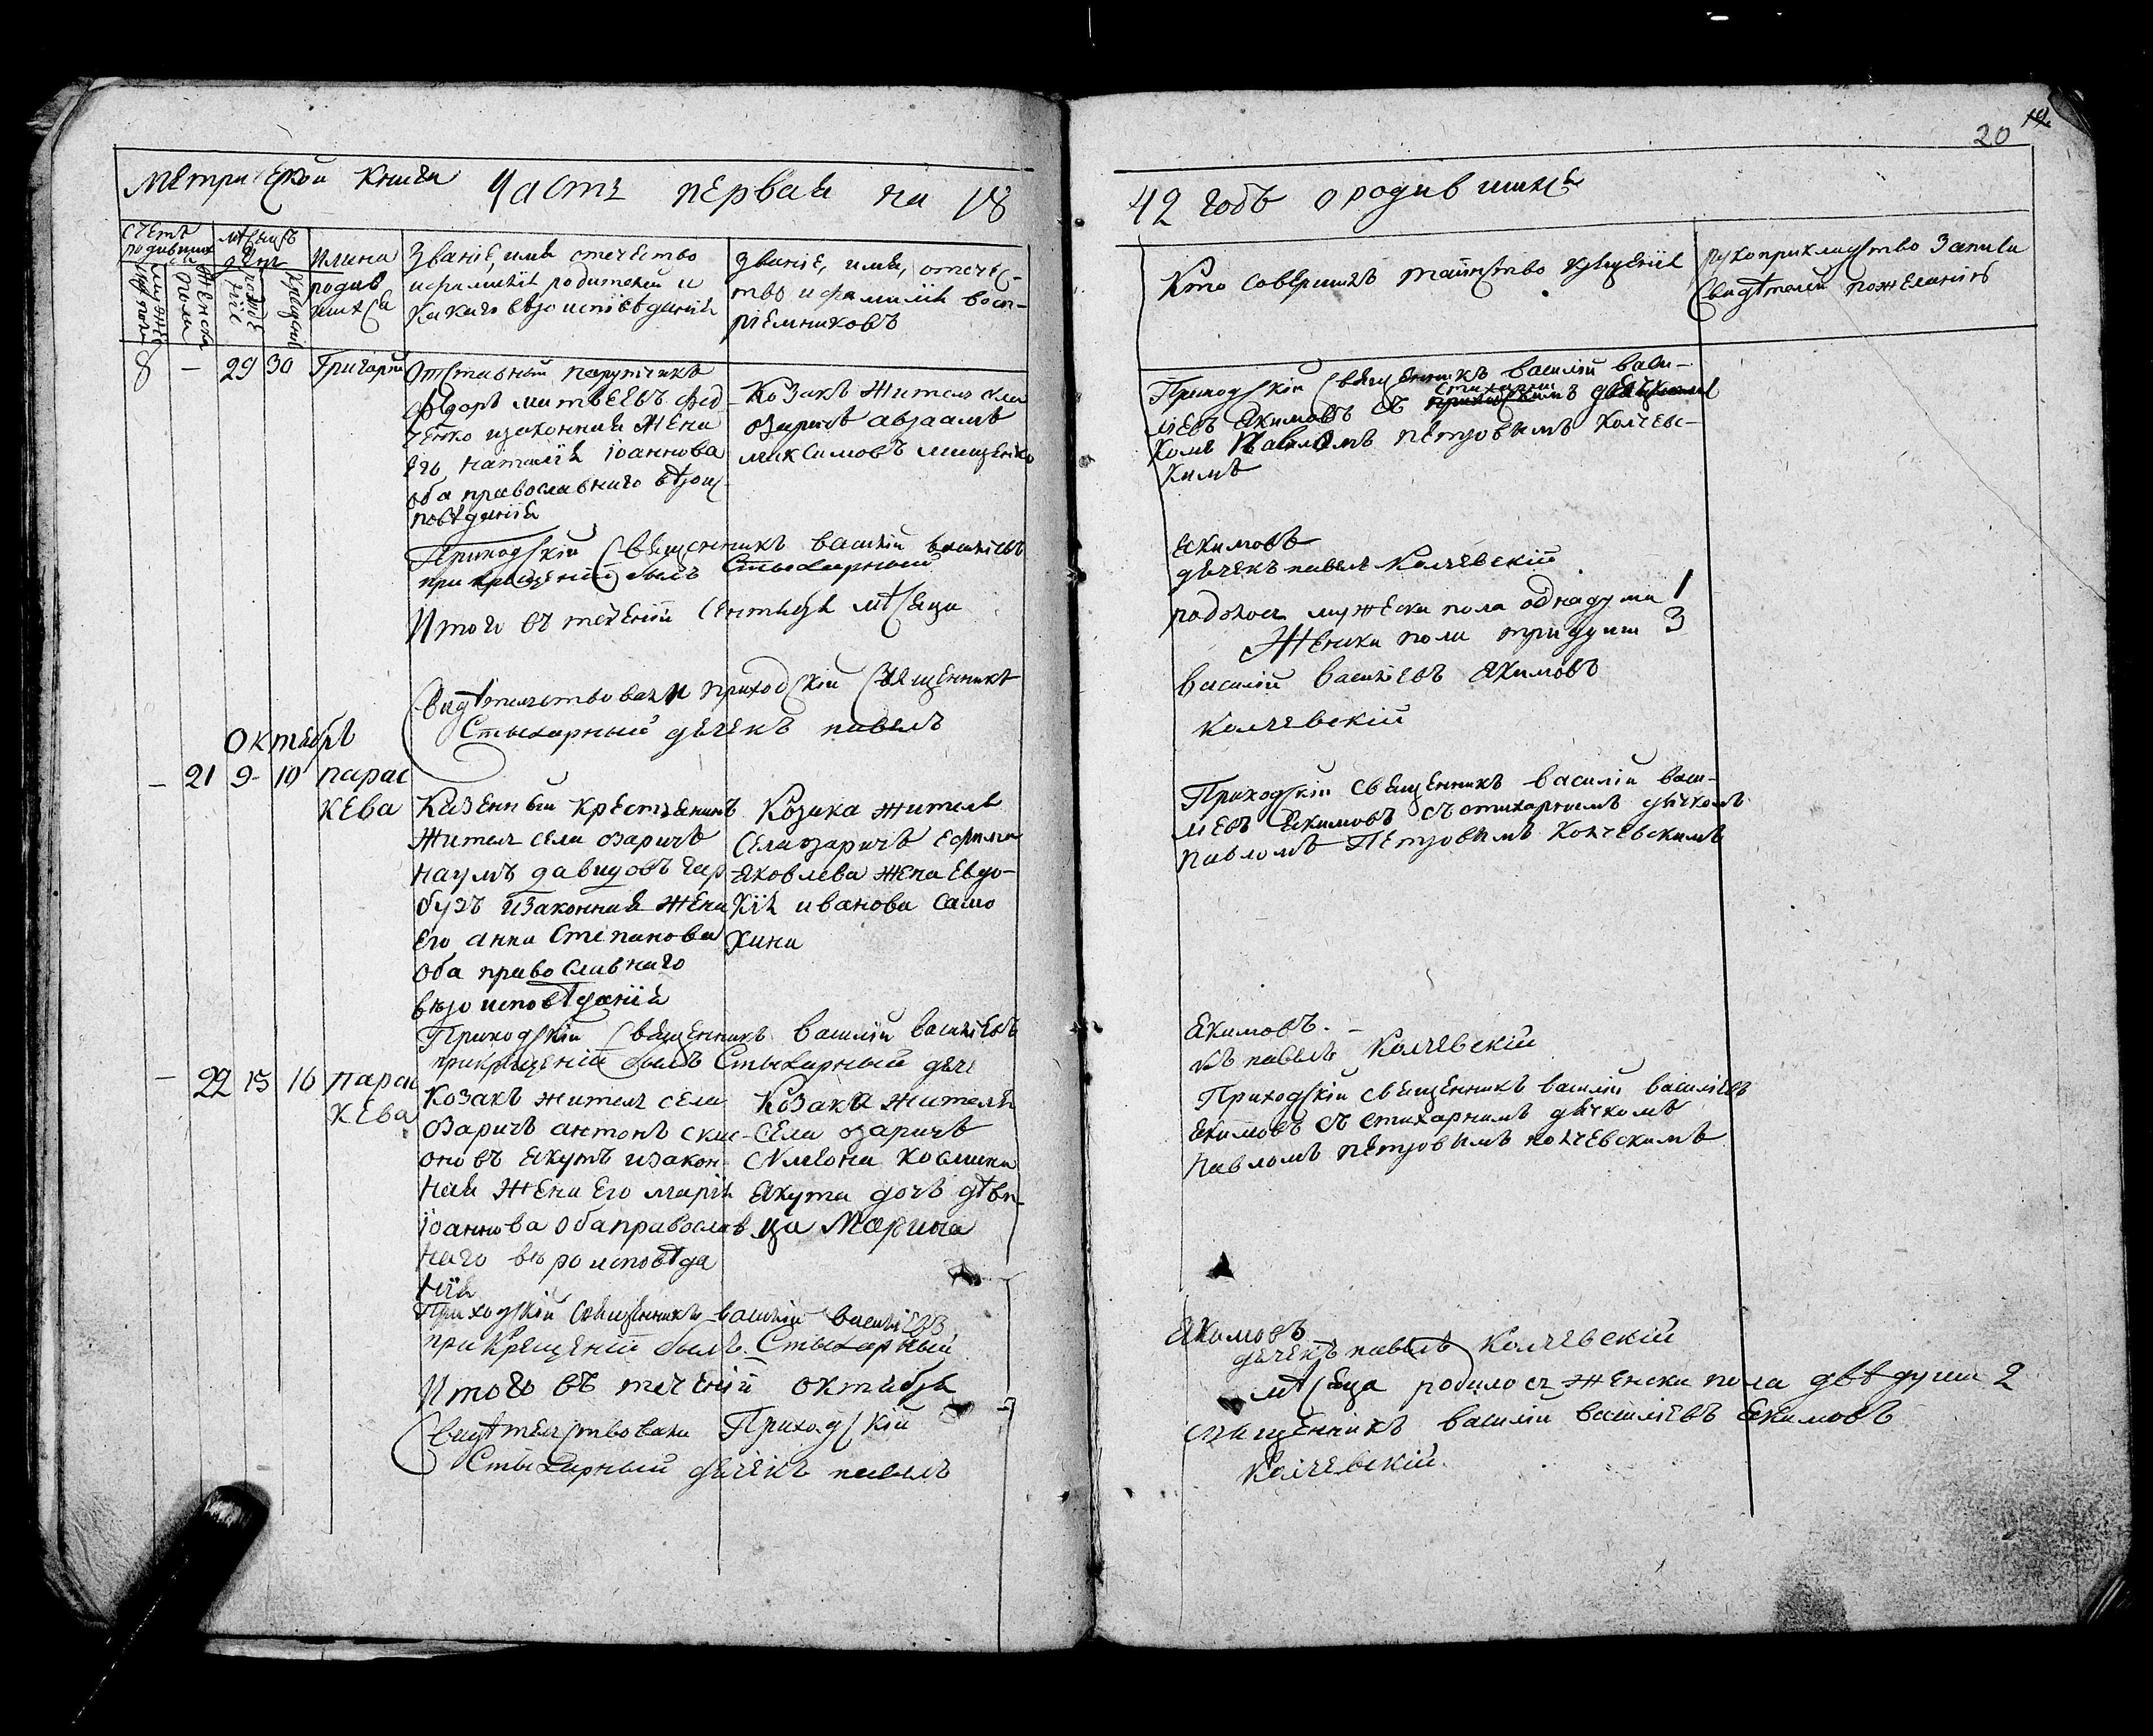 20 19
Метрической книги Часть первая на 18
42 годъ о родившихся
Счетъ родившихся
Мужеска пола
Женска пола
Мѣсяцъ День
рожденіе
Крещенія
Имена родив шихся
Званіе, имя отечество
и фамилія родителей и
какаго вѣроисповѣданія
Званіе, имя, отечес-
тво и фамилія восп-
ріемниковъ
Кто совершилъ таинство крещенія
Рукоприкладство записи
свидѣтелей по желанію
8 – 29 30 Григорій
Отставный порутчикъ
Федоръ Матвеевъ
ченко изаконная жена
его Наталія Іоаннова
оба православнаго вѣроис-
повѣданія
Козакъ житель села
Озаричъ Авраамъ
Максимовъ Мищенко
Приходскій священникъ Василій Васи-
ліевъ Екимовъ съ стихарнимъ дьяч
комъ Павломъ Петровымъ Колчевс-
кимъ
Приходскій Священникъ Василій Василіевъ
Екимовъ
при крещеніи былъ Стыхарный
дьячекъ Павелъ Колчевскій
Итого въ теченіи Сентября мѣсяца
родилось мужеска пола одна душа 1
Женска пола три души 3
Свидѣтельствовали приходскій Священникъ
Василій Василіевъ Екимовъ
Стыхарный дьячекъ Павелъ
Колчевскій
Октябрь
– 21 9 10 Парас
кева
Казенный крестьянинъ
житель села Озаричъ
Наумъ Давидовъ Гар-
бузъ изаконная жена
его Анна Степанова
оба православнаго
вѣроисповѣданія
Козака жителя
села Озаричъ Ефима
Яковлева жена Евдо-
кія Иванова Само
хина
Приходскій священникъ Василій Васи-
ліевъ Екимовъ съ стихарнимъ дьячкомъ
Павломъ Петровымъ Колчевскимъ
Приходскій Священникъ Василій Василіевъ
Екимовъ.
при крещеніи былъ Стыхарный дяче
къ Павелъ Колчевскій
– 22 15 16 Парас
кева
Козакъ житель села
Озаричъ Антонъ
оновъ Екутъ изакон-
ная жена его Марія
Іоаннова оба православ
наго вѣроисповѣда
нія
Козака жителя
села Озаричъ
Симеона Космина
Якута дочь дѣви-
ца Марина
Приходскій священникъ Василій Василіевъ
Екимовъ съ стихарнимъ дьячкомъ
Павломъ Петровымъ Колчевскимъ
Приходскій Священникъ Василій Василіевъ
Екимовъ
при крещеніи былъ Стыхарный
дьячекъ Павелъ Колчевскій
Итого въ теченіи Октября
мѣсяца родилось женска пола двѣ души 2
Свидѣтельствовали Приходскій
священникъ Василій Василіевъ Екимовъ
Стыхарный дьячекъ Павелъ
Колчевскій